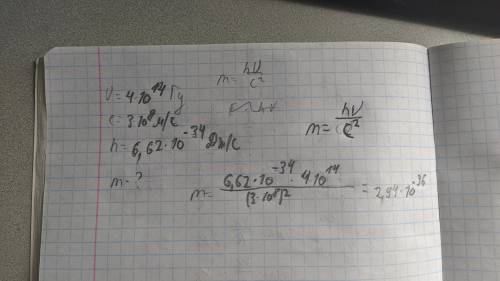 m = hν/c²
ν = 4·10¹⁴ Гц
c = 3·10⁸ м/с
m = hν/c²
h = 6,62·10⁻³⁴ Дж/с
m - ?
m = 6,62·10⁻³⁴ · 4·10¹⁴ / (3·10⁸)² = 2,94·10⁻³⁶